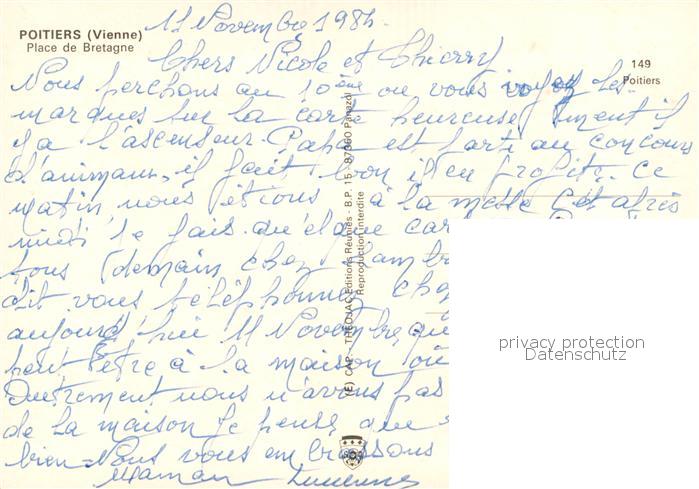 POITIERS (Vienne)
Place de Bretagne
149
Poitiers
11 Novembre 198
Chers Nicole et Thierry
Nous perchons au 10ème ou vous voyez les
marques sur la carte heureusement il
y a l'ascenseur. Papa est parti au concours
d'animaux, il fait bon il en profite. Ce
matin nous étions à la messe Cet après
midi je fais quelque car
tous demain chez
dit vous téléphonez chez
aujourd'hui 11 Novembre, qu
peut être à la maison ou
Autrement nous n'avons pas
de la maison Je pense que
bien = Nous vous embrassons
Maman
(E) CAP - THEOJAC Editions Réunies - B.P. 15 - 87350 Panazol
Reproduction interdite
privacy protection
Datenschutz